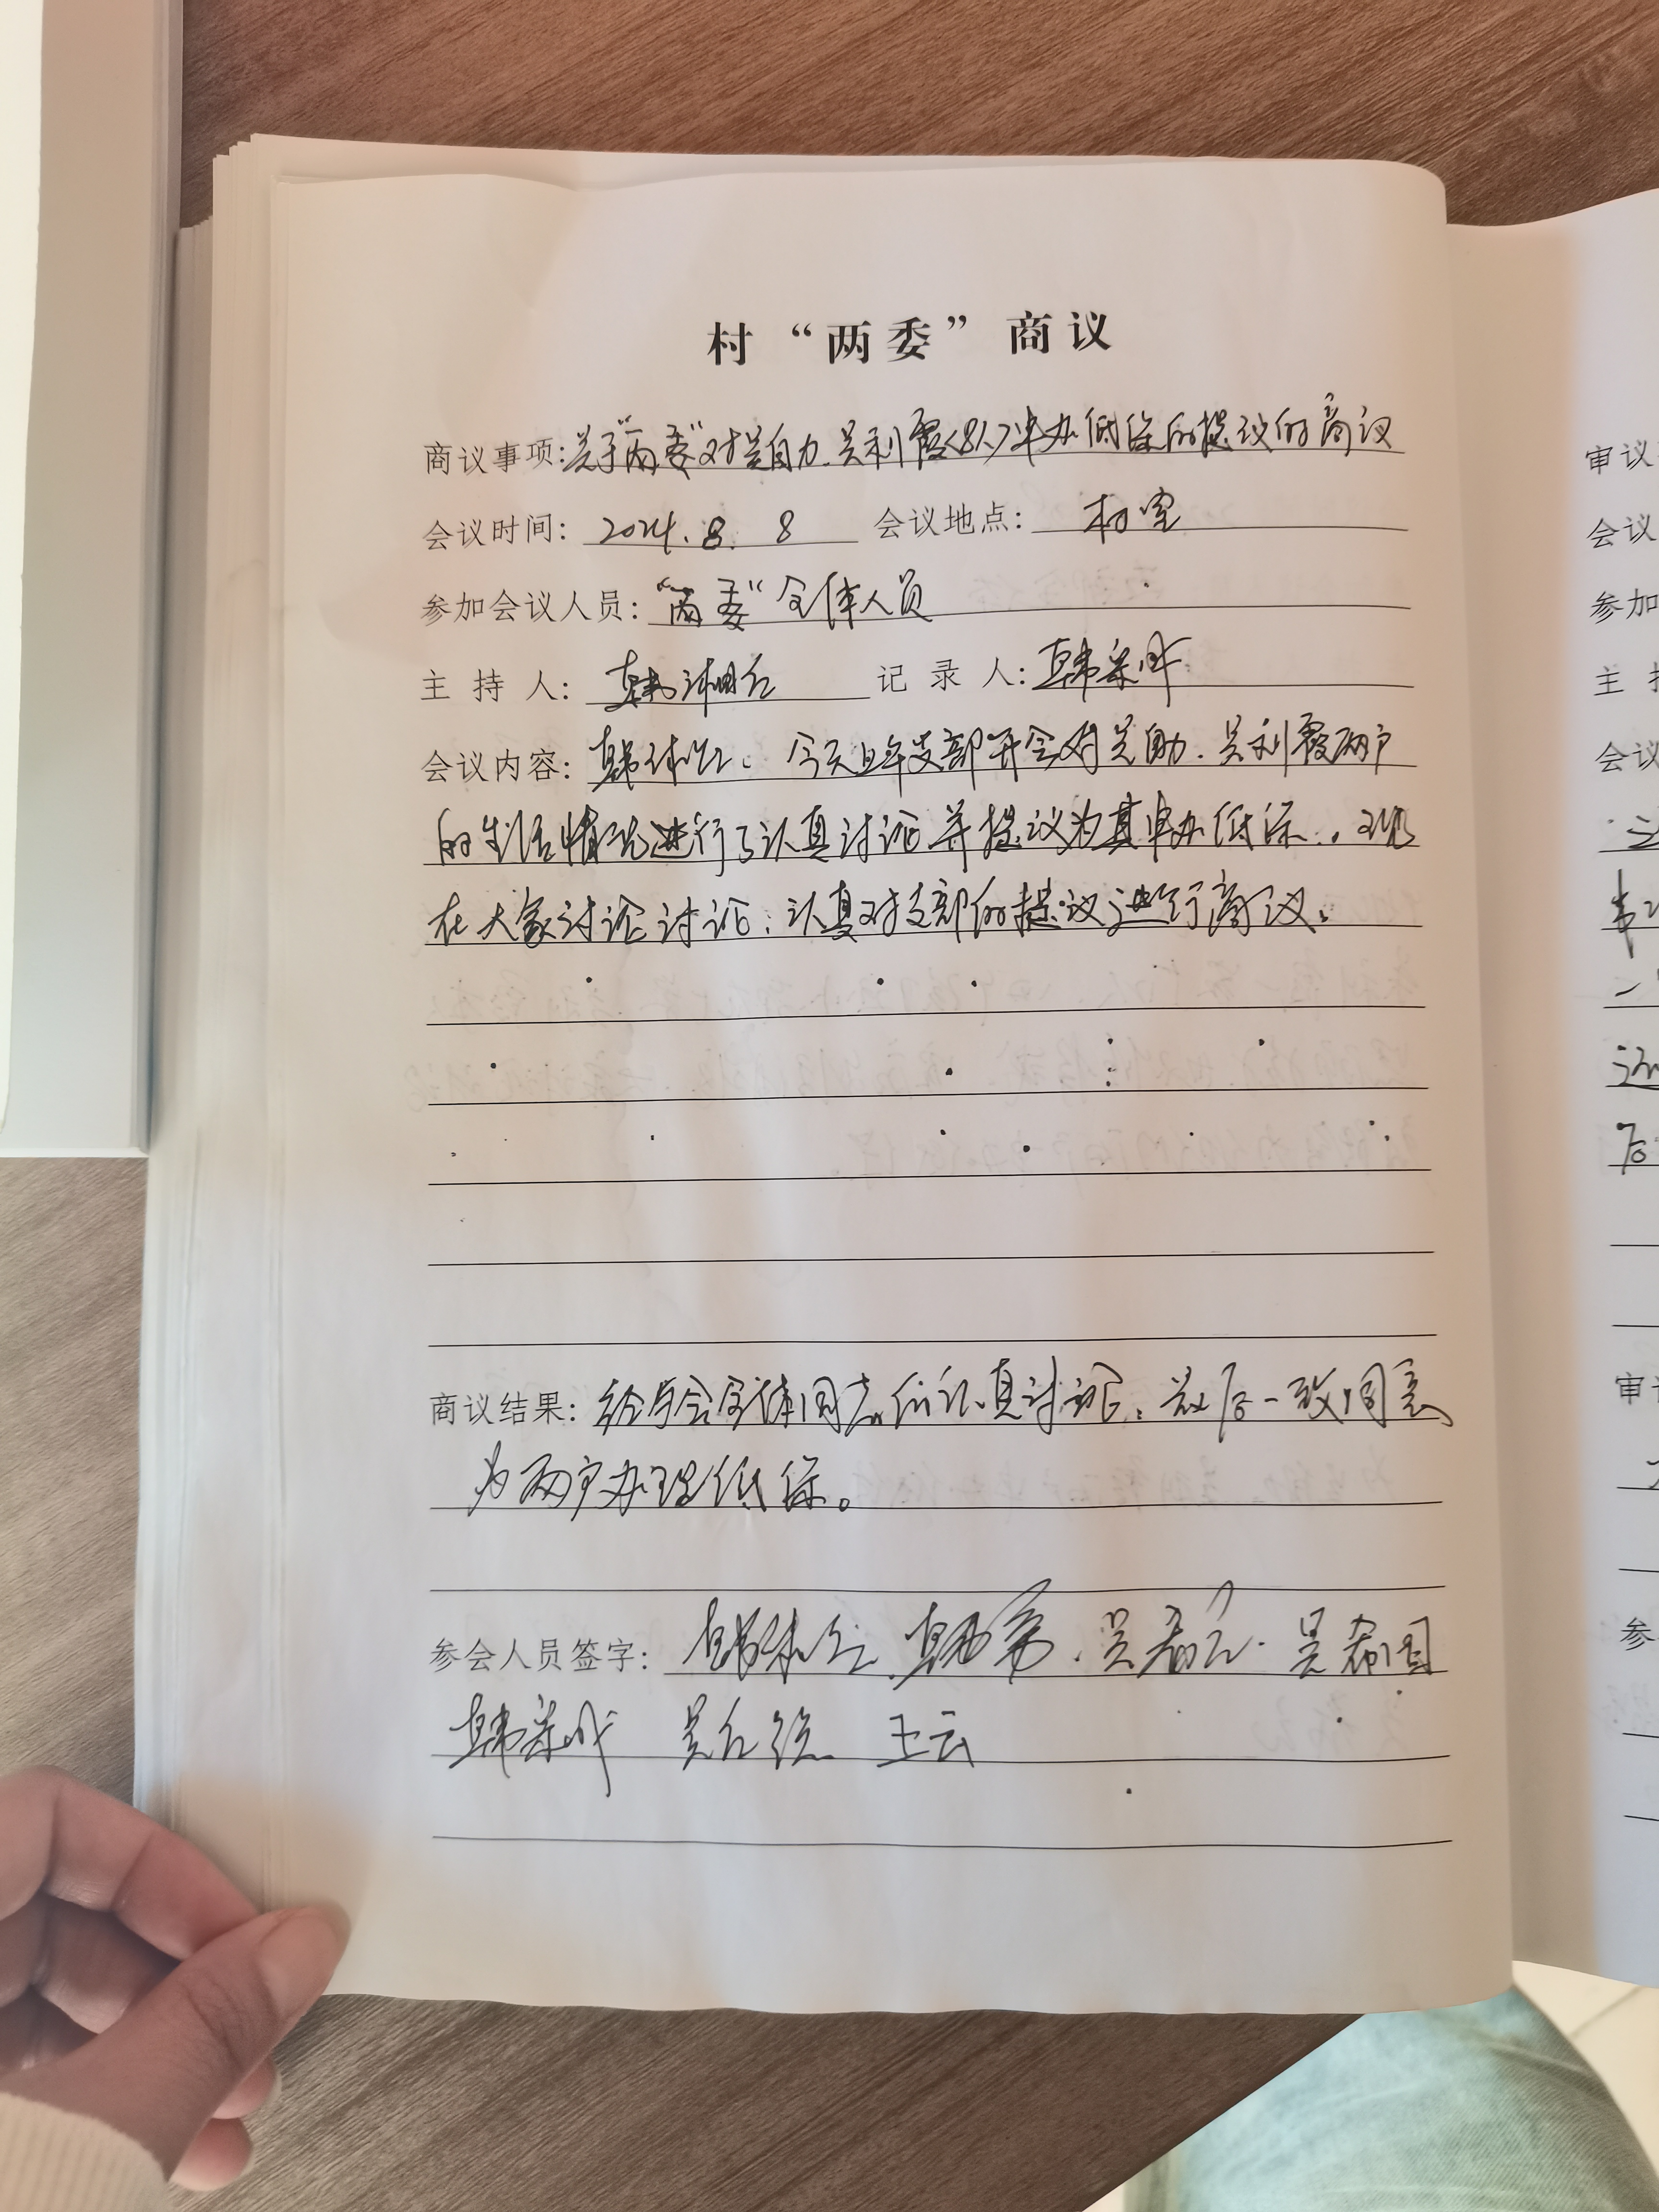 村“两委”商议
商议事项:关于“两委”对吴自力、吴利霞<8人>申办低保的提议的商议
会议时间: 2024.8.8 会议地点: 村室
参加会议人员: “两委”全体人员
主持人: 韩 记录人: 韩
会议内容: 韩 今天上午支部开会对吴自力、吴利霞两户
的生活情况进行了认真讨论并提议为其申办低保,现
在大家讨论讨论,认真对支部的提议进行商议。
商议结果: 经与会全体同志们认真讨论,最后一致同意
为两户办理低保。
参会人员签字: 吴 吴希国
韩 吴 王云
审议
会议
参加
主
会议
审议
参